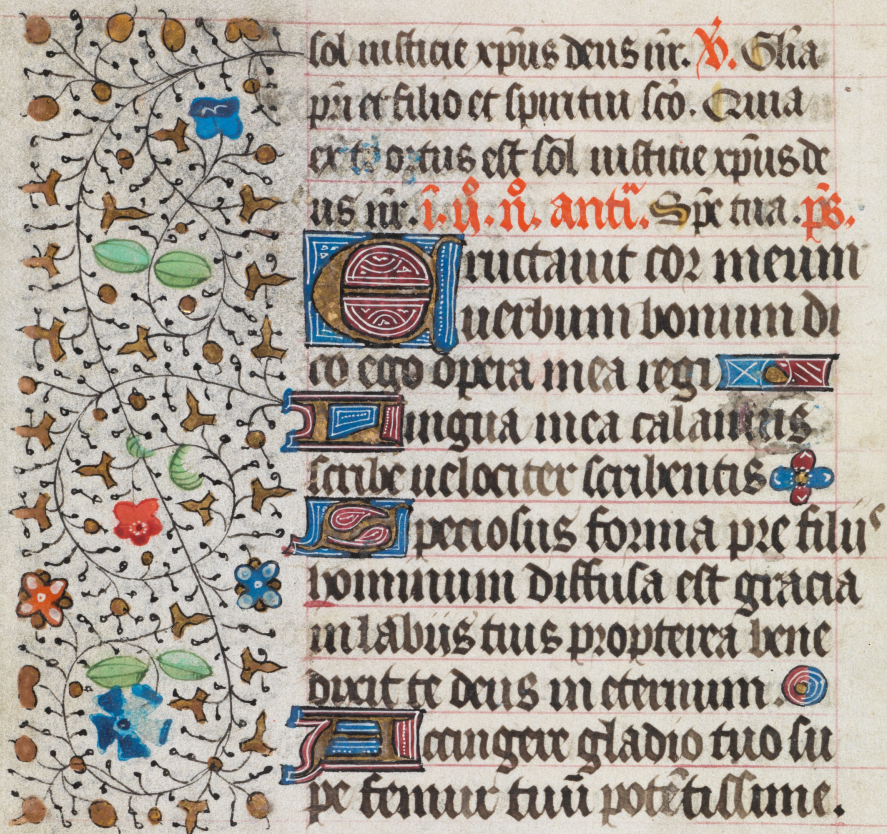 sol iusticie xp̄us deus n̄r. V̄. Gl̄ia
pr̄i et filio et spiritui sc̄o. Quia
ex te ortus est sol iusticie xp̄us de
us n̄r. ī. ꝙ̊. n̊. antī. Spē tua. p̄s.
Eructauit cor meum
uerbum bonum di
co ego opera mea regi
Lingua mea calamus
scribe uelociter scribentis
Speciosus forma pre filiis
hominum diffusa est gracia
in labiis tuis propterea bene
dixit te deus in eternum.
Accingere gladio tuo su
pe femur tuū potētissime.